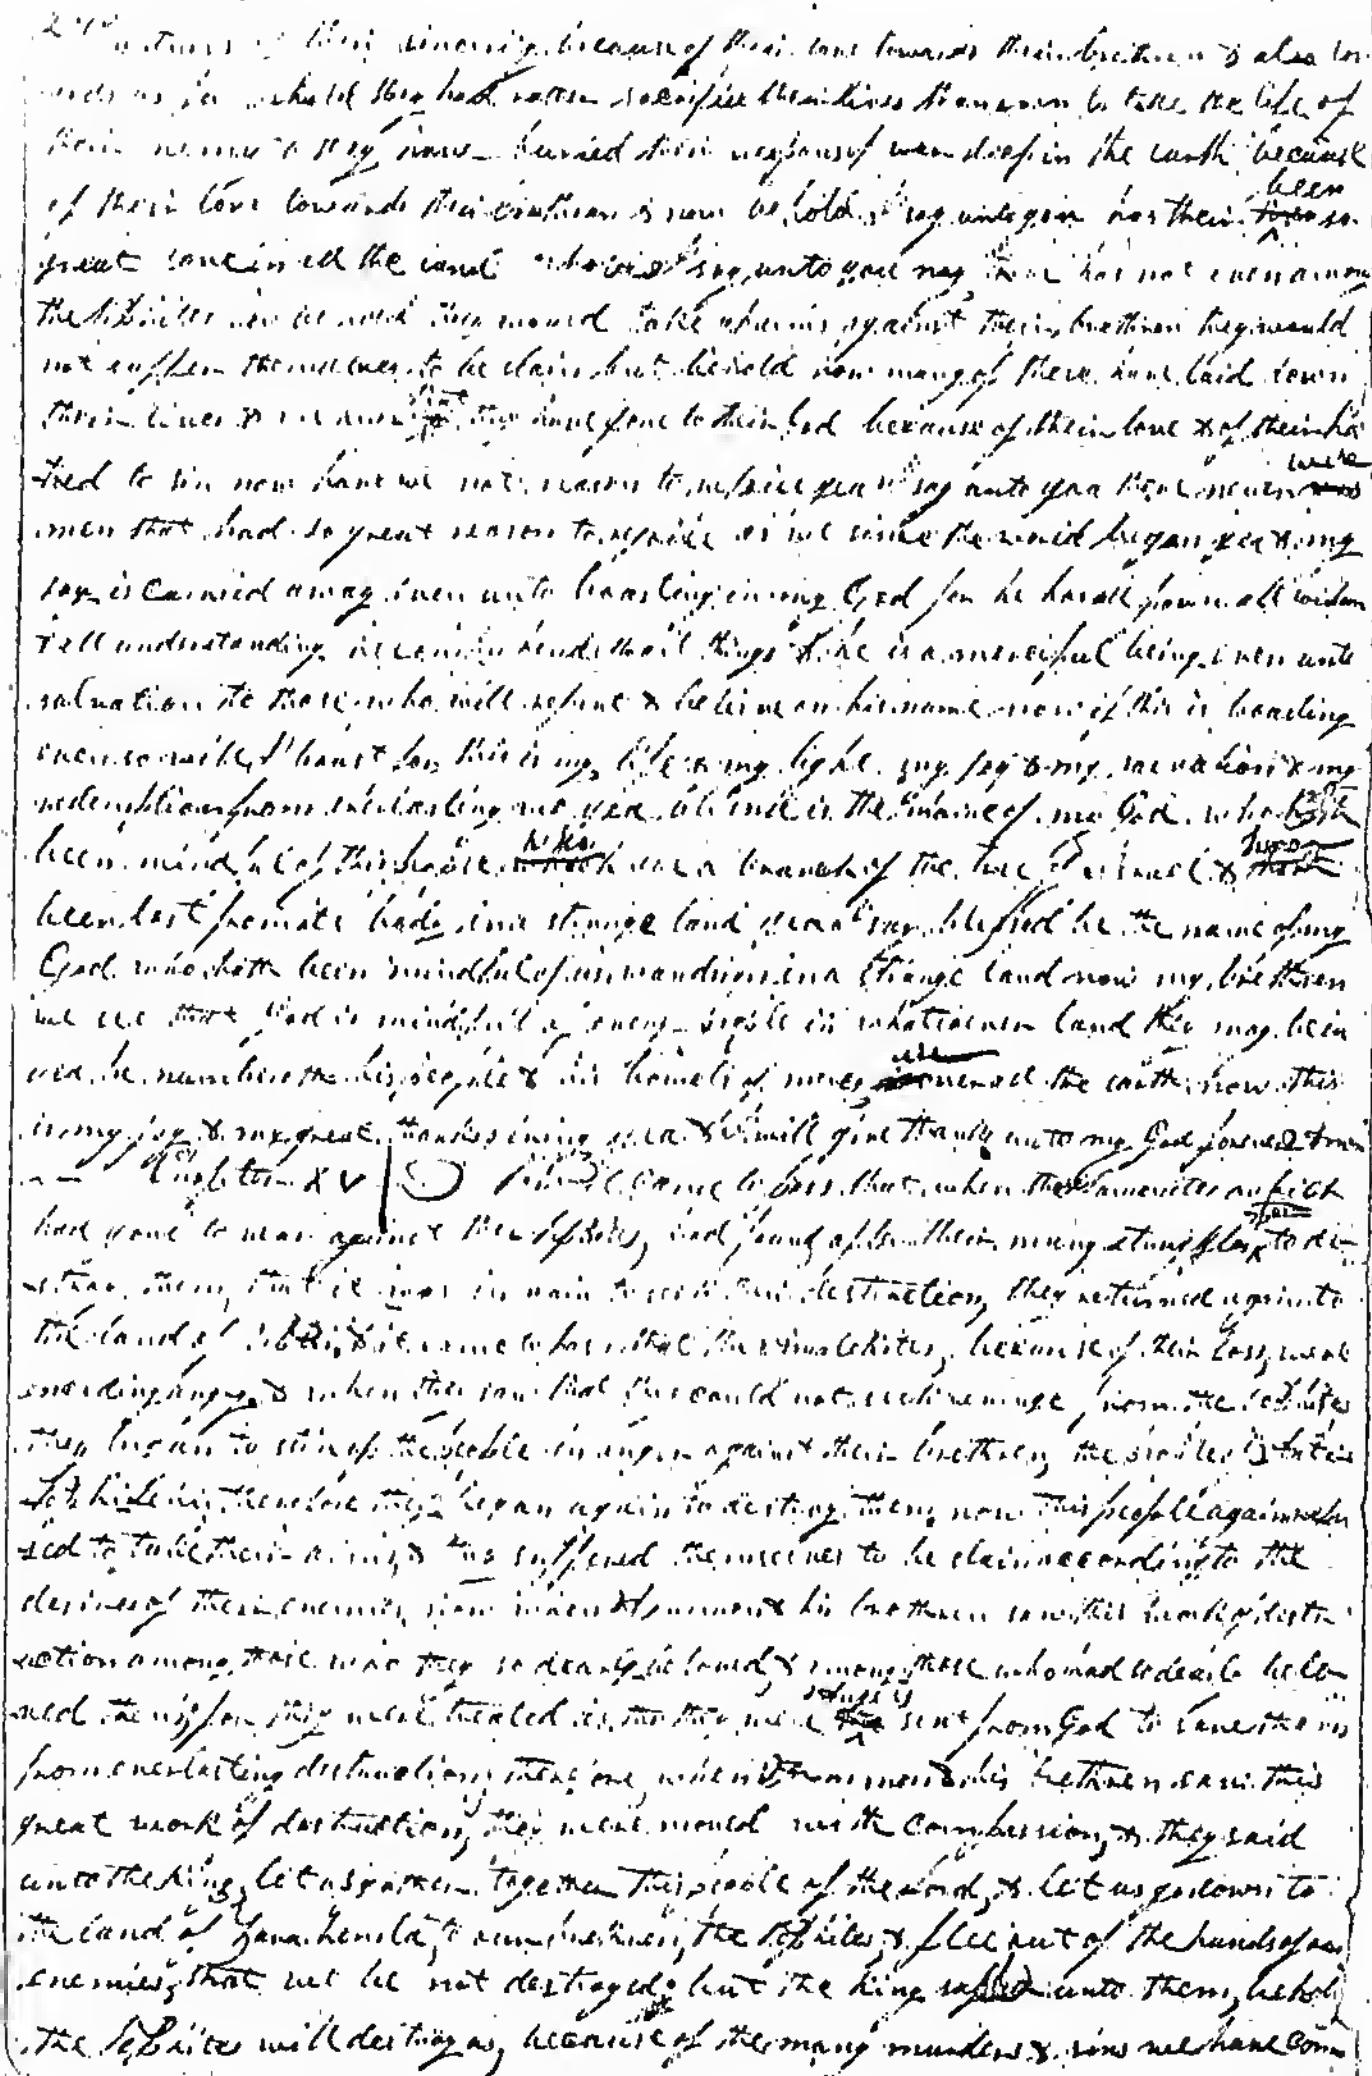 witness of their sincerity because of their love towards their brethren & also to
wards us for behold they had rather sacrifice their lives than even to take the life of
their enemy & they have buried their weapons of war deep in the earth because
of their love towards their brethren & now behold I say unto you has their been so
great love in all the land behold I say unto you nay there has not even among
the Nephites for behold they would take up arms against their brethren they would
not suffer themselves to be slain but behold how many of these have laid down
their lives & we know that they have gone to their God because of their love & of their ha
tred to sin now have we not reason to rejoice yea I say unto you there never were
men that had so great reason to rejoice as we since the world began yea & my
joy is carried away even unto boasting in my God for he has all power all wisdom
& all understanding he comprehendeth all things & he is a merciful being even unto
salvation to those who will repent & believe on his name now if this is boasting
even so will I boast for this is my life & my light my joy & my salvation & my
redemption from everlasting wo yea blessed is the name of my God who hath
been mindful of this people who are a branch of the tree of Israel & has
been lost from its body in a strange land yea I say blessed be the name of my
God who hath been mindful of us wanderers in a strange land now my brethren
we see that God is mindful of every people in whatsoever land they may be in
yea he numbereth his people & his bowels of mercy are over all the earth now this
is my joy & my great thanksgiving yea & I will give thanks unto my God forever Amen
Chapter XV And it came to pass that when those Lamanites which
had gone to war against the Nephites, had found, after their many struggles to de
stroy them, that it was in vain to seek their destruction, they returned again to
the land of Nephi, & it came to pass that the Amalekites, because of their loss, were
exceding angry, & when they saw that they could not seek revenge from the Nephites
they began to stir up the people in anger against their brethren, the people of Anti
Nephi Lehi, therefore they began again to destroy them, now this people again refu
sed to take their arms, & they suffered themselves to be slain according to the
desires of their enemies, now when Ammon & his brethren saw this work of distr
uction among those who they so dearly beloved, & among those who had so dearly belo
ved them, for they were treated as tho they were angels sent from God to save them
from everlasting destruction, therefore, when Ammon & his brethren saw this
great work of destruction, they were moved with compassion, & they said
unto the King, let us gather together this people of the Lord, & let us go down to
the land of Zarahemla, to our brethren, the Nephites, & flee out of the hands of our
enemies, that we be not destroyed, but the king said unto them, behold
the Nephites will destroy us, because of the many murders & sins we have com